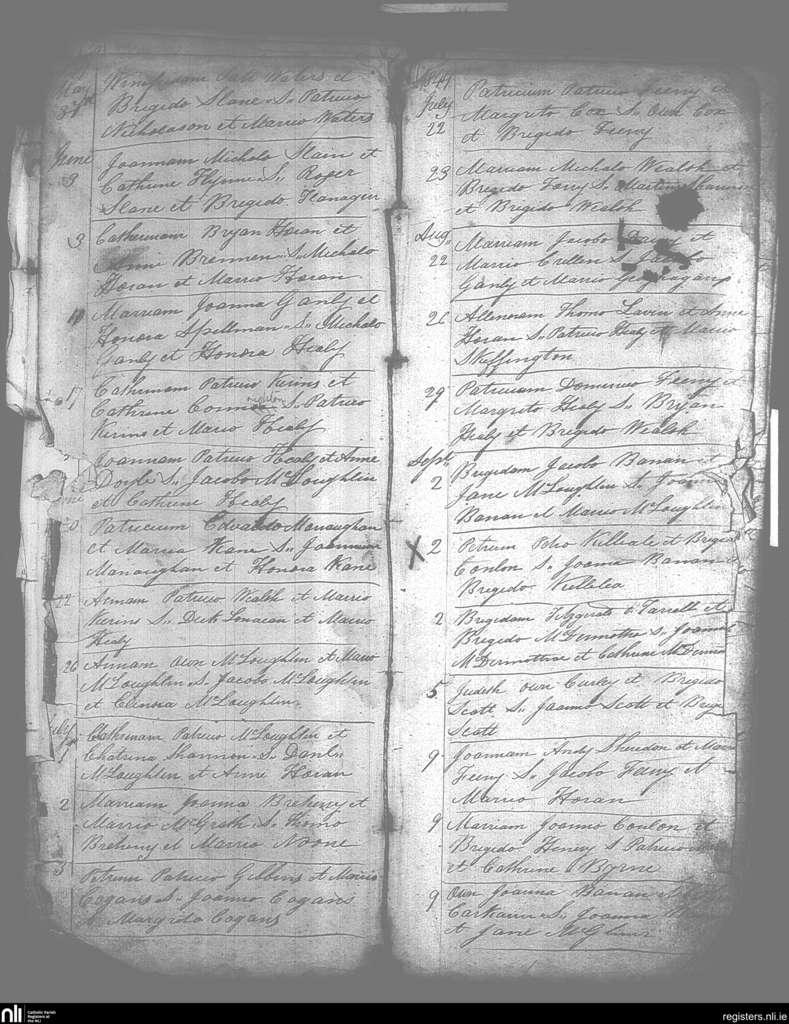 May
Winefredam Waters et
3rd Bregido Slane S.. Patricio
Nicholason et Marrio Waters
June
Joannam Michalo Slain et
3 Cathrine Flynn S.. Roger
Slane et Bregido Flanagin
3 Catherinam Bryan Horan et
Anne Brennen S.. Michalo
Horan et Marrio Horan
Marriam Joanna Ganly et
Honora Spellman S.. Michalo
Ganly et Honora Healy
17 Catherinam Patricio Kerins et
Cathrine S.. Patricio
Kerins et Mario Healy
Joannam Patricio Healy et Anne
Doyle S.. Jacobo McLoughlin
et Cathrine Healy
Patricium Edvardo Monaughan
et Marria Kane S..
Manaughan et Honora Kane
22 Annam Patricio Wealsh et Marrio
Kerins S.. et Marrio
Healy
26 Annam Own McLoughlin et Mario
McLoughlin S. Jacobo McLoughlin
et Elinora McLoughlin
July
1 Catherinam Patricio McLoughlin et
Chatrina Shannon S.. Danl..
McLoughlin et Anne Horan
2 Marriam Joanna Breheny et
Marrio McGrath S.. Thomo
Breheny et Marrio Noone
3 Petrum Patricio Gibbins et Marrio
Cogans S.. Joanno Cogans
et Margrito Cogans
1841
July
22
Patricium Patricio Feeny et
Margrito Cox S.. Own Cox
et Bregido Feeny
23 Marriam Michalo Wealsh et
Bregido Feeny S.. Martino Shannon
et Bregido Wealsh
Aug.
22
Marriam Jacobo et
Marrio Cullen S.. Jacobo
Ganly et Marrio
26 Allenoram Thomo Lavin et Anne
Horan S.. Patricio Healy et Marrio
Skeffington
29 Patricium Dominico Feeny et
Margrito Healy S.. Bryan
Healy et Bregido Wealsh
Sept.
2
Bregidam Jacobo Banan et
Jane McLoughlin S.
Banan et Marrio McLoughlin
X 2 Petrum Petro Killeale et Bregido
Conlon S.. Joanna Banan et
Bregido Killelea
2 Bregidam Fitzgerald o Farrell et
Bregido McDermottroe S.. Joanna
McDermottroe et Cathrine McDermo
5 Judith Own Curley et Bregido
Scott S.. Joanno Scott et Breg
Scott
9 Joannam Andy Sheridon et
Feeny S.. Jacobo Feeny et
Marrio Horan
9 Marriam Joanno Conlon et
Bregido Heniry S Patricio
et Cathrine Byrne
9 Own Joanna Banan et
S.. Joanna
et Jane
nli Catholic Parish
Registers at
the NLI
registers.nli.ie